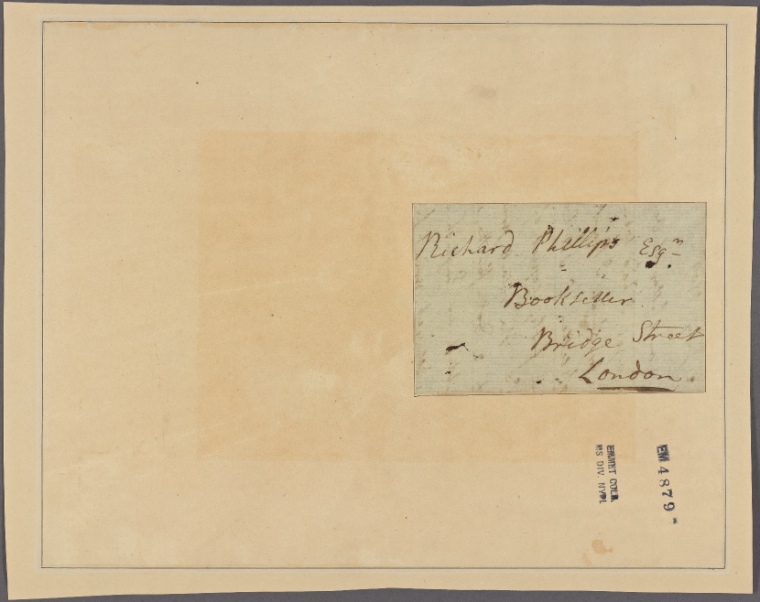 Richard Phillips Esqr
Bookseller
Bridge Street
London
EMMET COLL.
MS DIV. NYPL
EM 4879